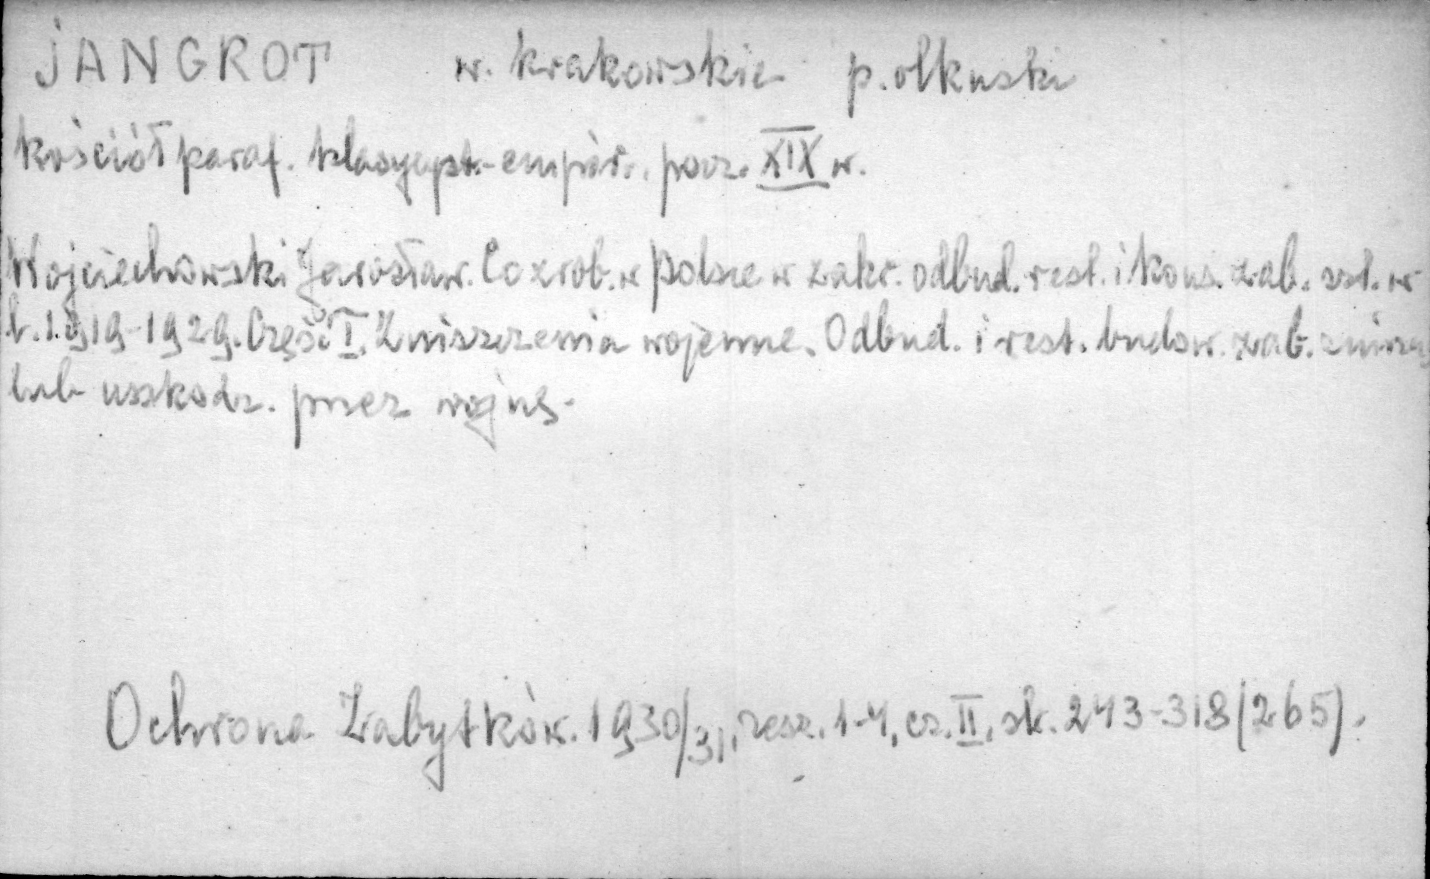 JANGROT w. krakowskie p. olkuski
kościół paraf. klasycyst.-empir. pocz. XIX w.
Wojciechowski Jarosław. Co zrob. w Polsce w zakr. odbud. rest. i kons. zab. szt. w
l. 1919-1929. Część I. Zniszczenia wojenne. Odbud. i rest. budow. zab. zniszcz
lub uszkodz. przez wojnę.
Ochrona Zabytków. 1930/31, zesz. 1-4, cz. II, str. 243-318 (265).